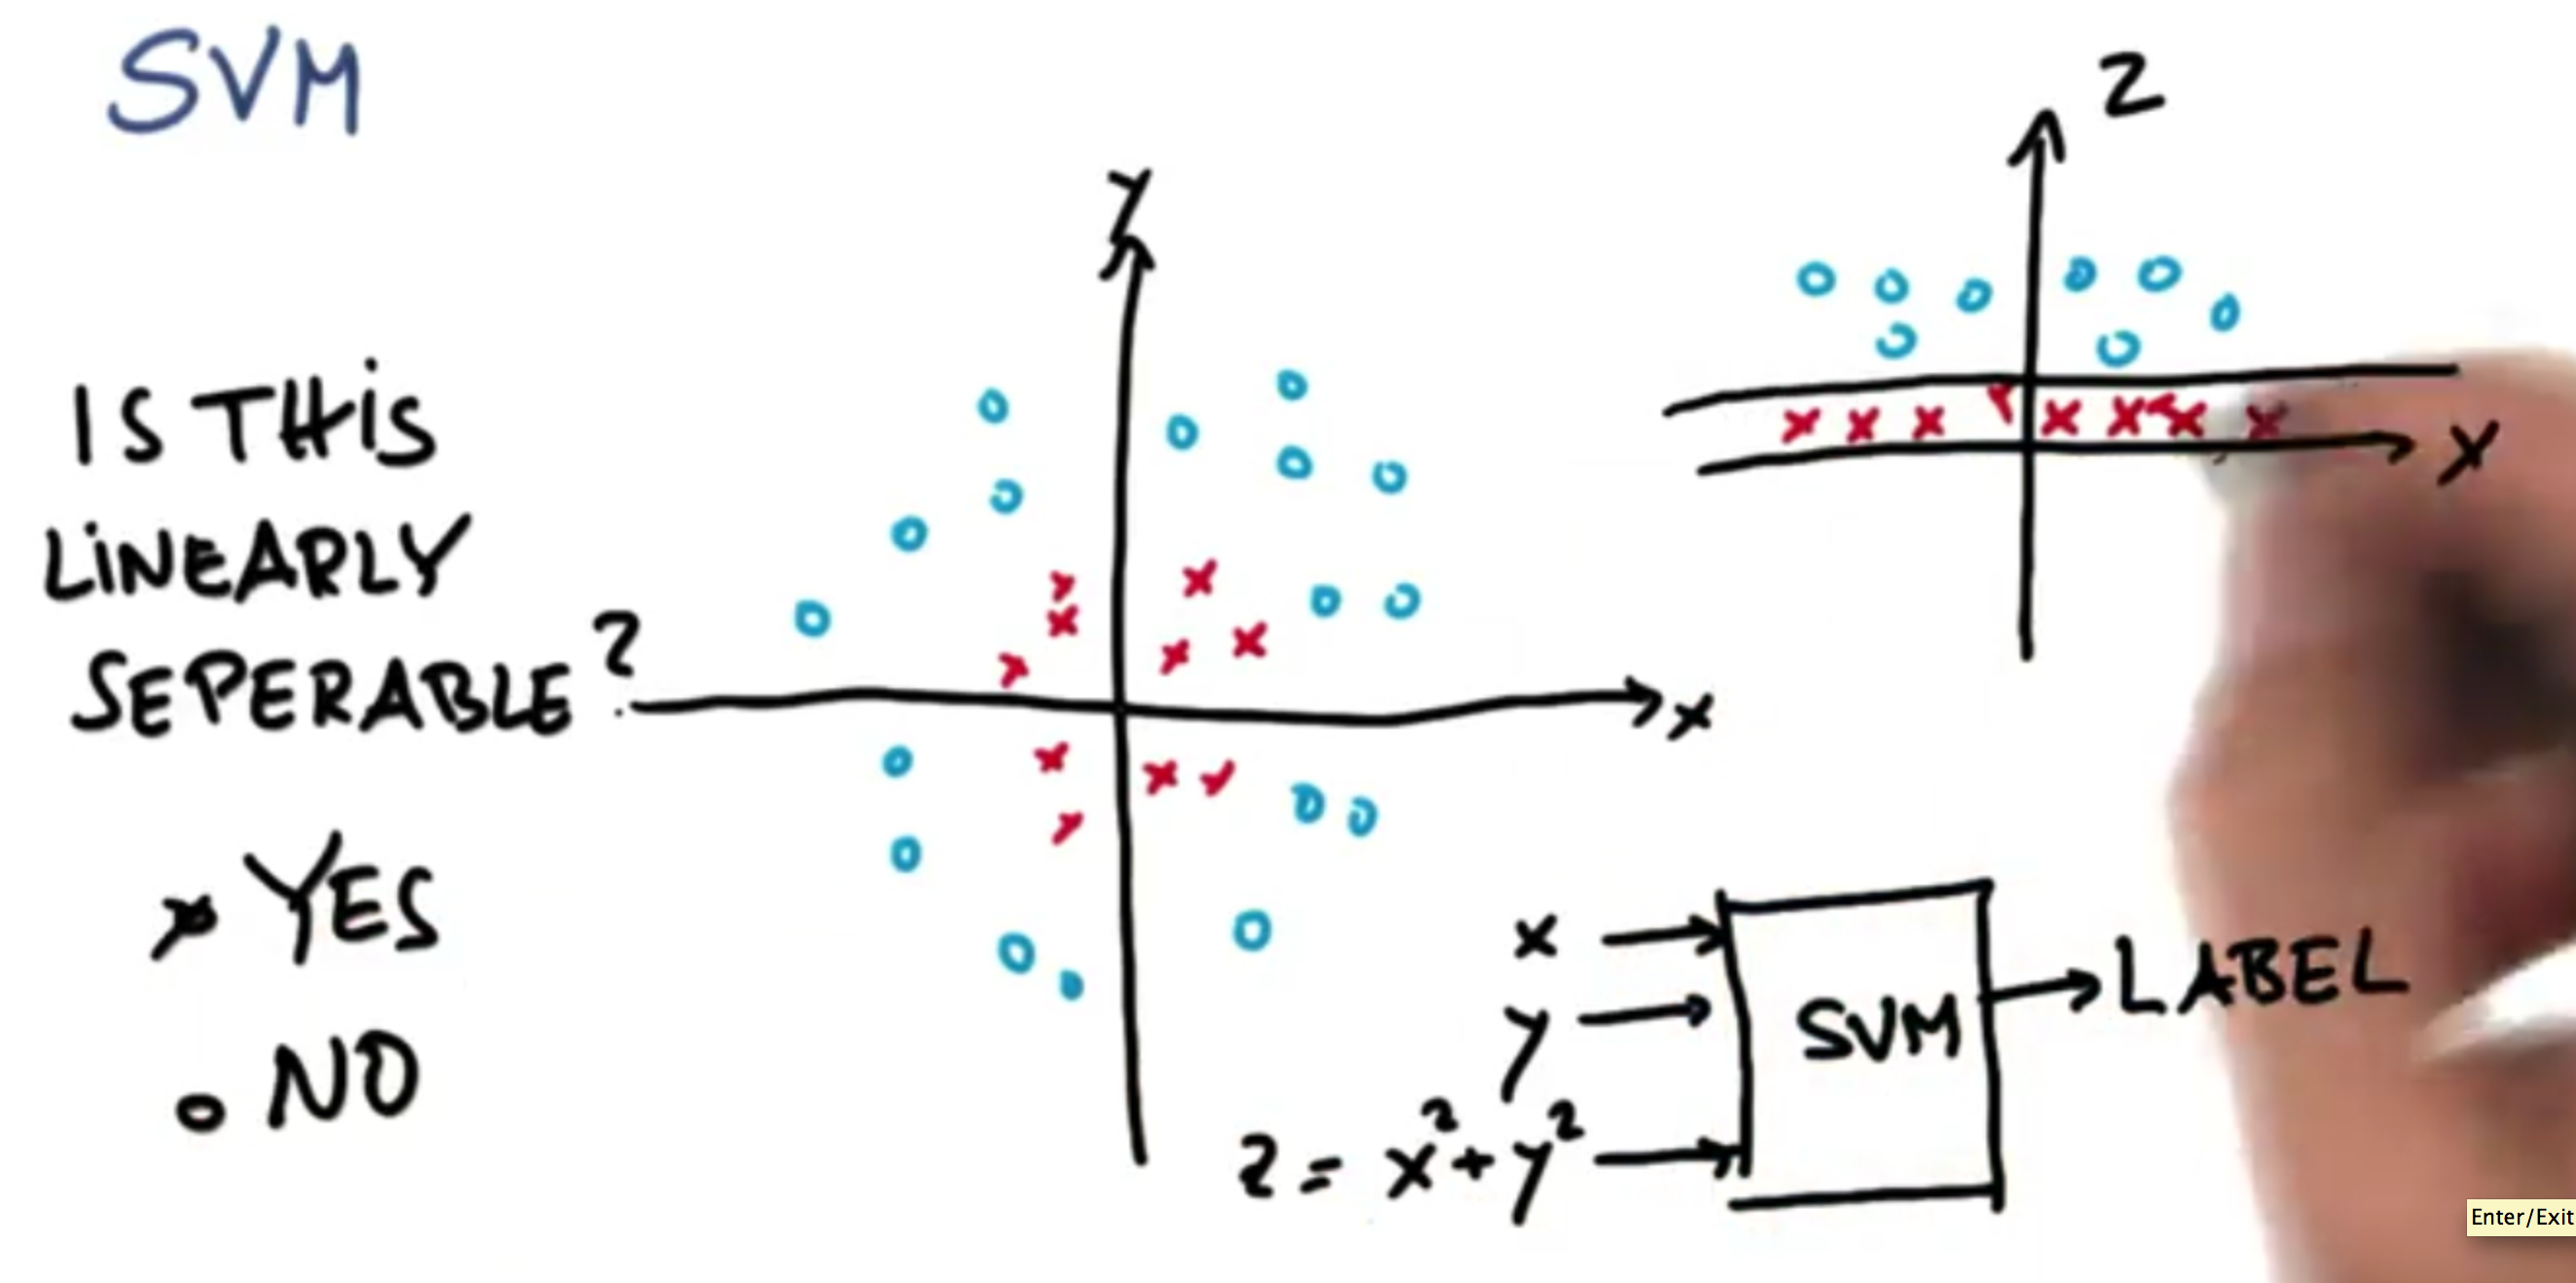 SVM
IS THIS
LINEARLY
SEPERABLE?
x YES
o NO
y
x
z
x
x
y
z = x²+y²
SVM
LABEL
Enter/Exit